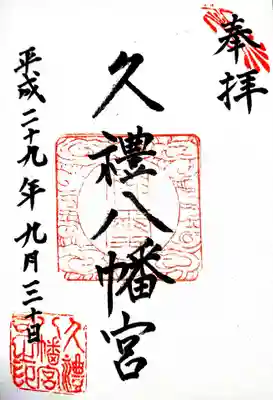 奉拝
久禮八幡宮
平成二十九年九月三十日
久禮八幡宮之印